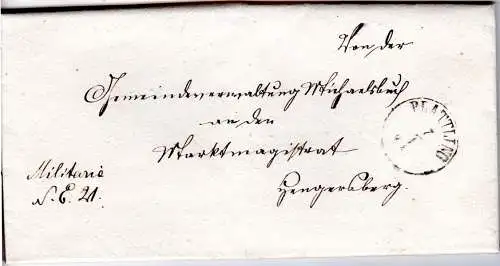 Von der
Gemeindeverwaltung Michaelsbuch
an den
Marktmagistrat
Hengersberg.
Militaria
N. E. 21.
PLATTLING